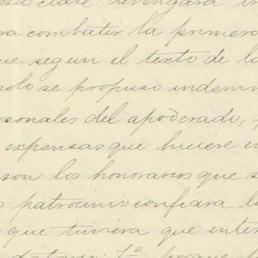 ese clase, devengará in
ra combatir la primera
que, segun el texto de la
solo se propuso indemn
rsonales del apoderado,
expensas que hiciere e
son los honorarios que s
patrocinio confiara l
que tuviera que inte
1º porque